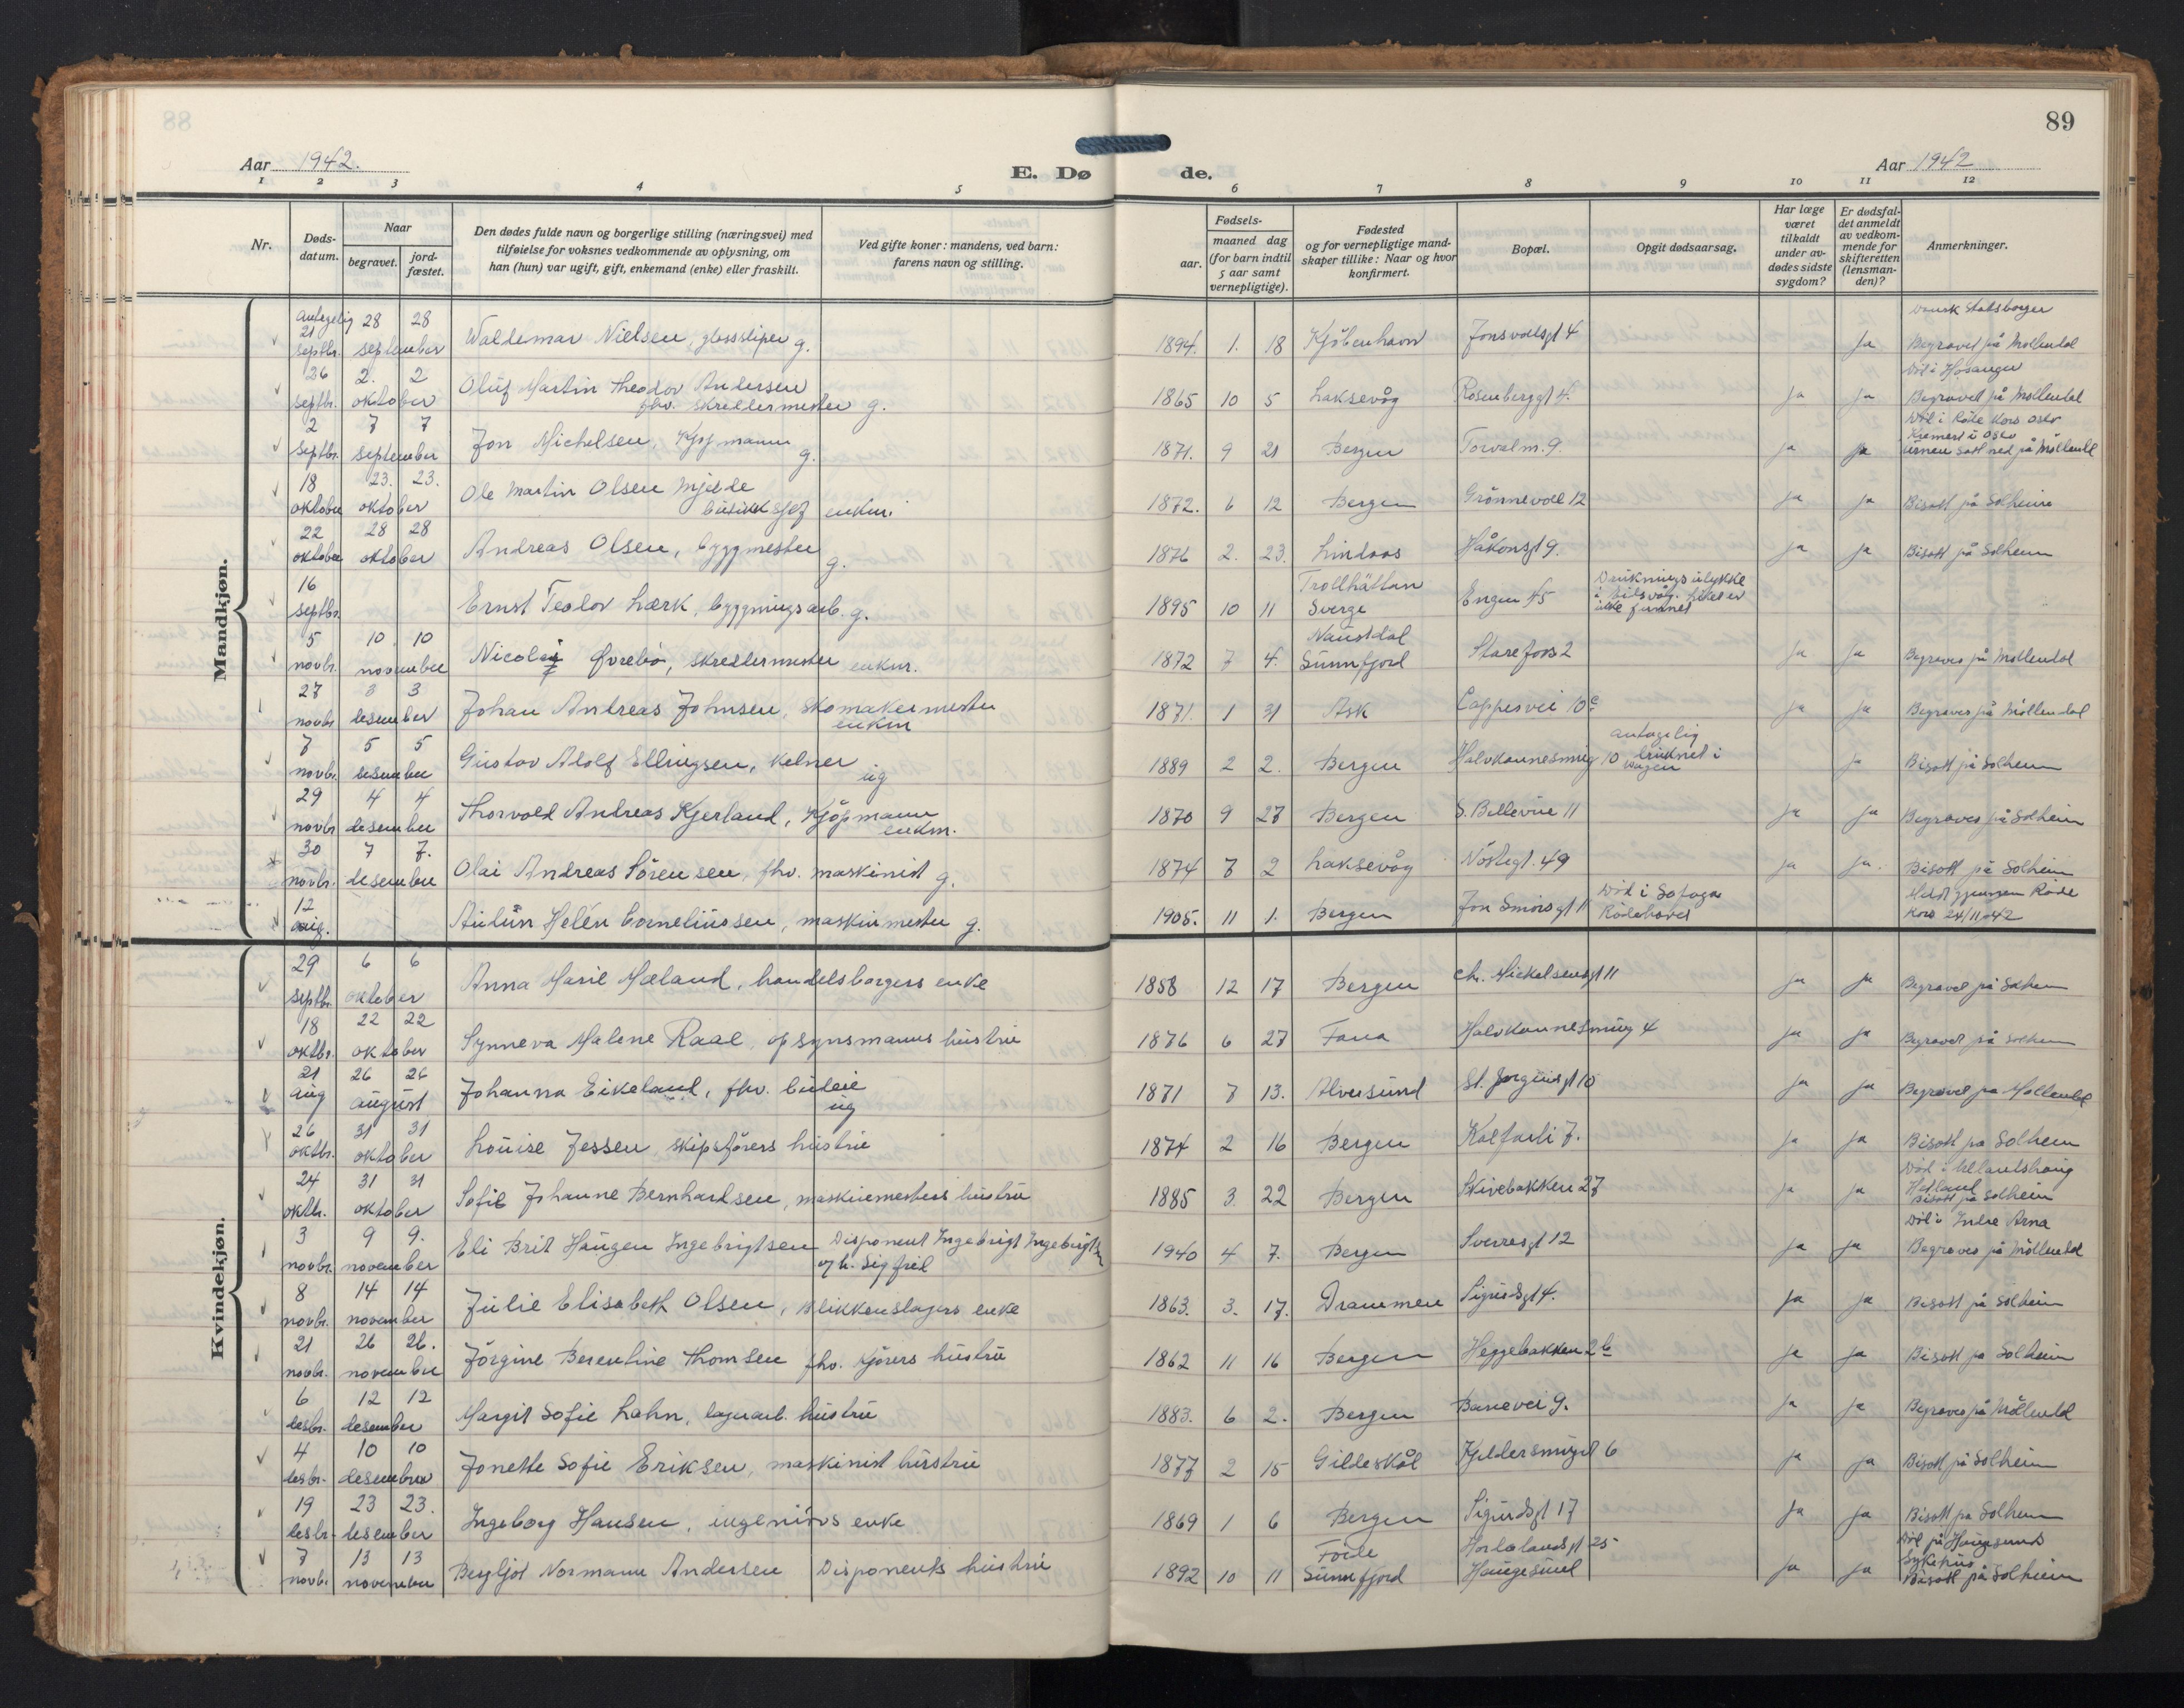 89
Aar 1942.
E. Dø de.
Aar 1942
1 2 3 4 5 6 7 8 9 10 11 12
Nr.
Døds-datum.
Naar
begravet.
jord-fæstet.
Den dødes fulde navn og borgerlige stilling (næringsvei) med
tilføielse for voksnes vedkommende av oplysning, om
han (hun) var ugift, gift, enkemand (enke) eller fraskilt.
Ved gifte koner: mandens, ved barn:
farens navn og stilling.
Fødsels-
aar.
maaned dag
(for barn indtil
5 aar samt
vernepligtige).
Fødested
og for vernepligtige mand-
skaper tillike: Naar og hvor
konfirmert.
Bopæl.
Opgit dødsaarsag.
Har læge
været
tilkaldt
under av-
dødes sidste
sygdom?
Er dødsfal-
det anmeldt
av vedkom-
mende for
skifteretten
(lensman-
den)?
Anmerkninger.
Mandkjøn.
Antagelig 21 septbr. 28 28 september Waldemar Nielsen, glassliper g. 1894. 1. 18 Kjöbenhavn Jonsvollsgt 4 ja Dansk Statsborger Begravet på Möllendal
26 septbr. 2. 2 oktober Oluf Martin Theodor Andersen fhv. skreddermester g. 1865 10 5 Laksevåg Rosenberggt 4. ja ja Död i Hosanger Begravet på Möllendal
2 septbr. 7 7 september Jon Michelsen, Kjöpmann g. 1871. 9 21 Bergen Torvalm. 9. ja ja Död i Röde Kors Oslo Kremert i Oslo urnen satt ned på Möllendl
18 oktober 23. 23. oktober Ole Martin Olsen Mjelde butikksjef enkm. 1872. 6 12 Bergen Grönnevoll 12 ja ja Bisatt på Solheim
22 oktober 28 28 oktober Andreas Olsen, byggmester g. 1876 2. 23. Lindaas Håkonsgt 9. ja ja Bisatt på Solheim
16 septbr. Ernst Teolov Lærk, bygningsarb. g. 1895 10 11 Trollhättan Sverge Engen 45 Drukningsulykke i Eidsvåg. Liket er ikke funnet
5 novbr. 10 10 november Nicolai Øvrebö, skreddermester enkm. 1872 7 4. Naustdal Sunnfjord Starefoss 2 ja ja Begraves på Möllendal
27 novbr. 3 3 desember Johan Andreas Johnsen, skomakermester enkm 1871. 1 31 Ask Cappesvei 10c ja ja Begraves på Möllendal
7 novbr. 5 5 desember Gustav Adolf Ellingsen, kelner ug 1889 2 2. Bergen Halvkannesmug 10 antagelig druknet i vågen ja Bisatt på Solheim
29 novbr 4 4 desember Thorvald Andreas Kjerland, Kjöpmann enkm. 1870 9 27 Bergen S. Bellevue 11 ja ja Begraves på Solheim
30 novbr. 7 7. desember Olai Andreas Sörensen, fhv. maskinist g. 1874 7 2 Laksevåg Nöstegt. 49 ja ja. Bisatt på Solheim
12 aug. Autun Helén Corneliussen, maskinmester g. 1905. 11 1. Bergen Jon Smörsgt 11 Död i Rödehavet Meldt gjennem Röde Kors 24/11-42
Kvindekjøn.
29 septbr. 6 6 oktober Anna Marie Mæland, handelsborgers enke 1858 12 17 Bergen Chr. Michelsensgt 11 ja ja Begravet på Solheim
18 oktbr. 22 22 oktober Synneva Malene Raae, opsynsmanns hustru 1876 6 27 Fana Halvkannesmug 4 ja ja Begravet på Solheim
21 aug 26 26 august Johanna Eikeland, fhv. budeie ug 1871 7 13. Alversund St. Jörgensgt 10 ja ja Begravet på Möllendal
26 oktbr. 31 31 oktober Louise Jessen skipsförers hustru 1874 2 16 Bergen Kalfarli 7. ja ja Bisatt på Solheim
24 oktbr. 31 31 oktober Sofie Johanne Bernhardsen, maskinmesters hustru 1885 3. 22 Bergen Skivebakken 27 ja ja Död i Ullandshaug Hetland Bisatt på Solheim
3 novbr. 9 9. november Eli Brit Haugen Ingebrigtsen Disponent Ingebrigt Ingebrigtsn og h. Sigfrid 1940 4 7. Bergen Sverresgt 12 ja ja Död i Indre Arna Begraves på Möllendal
8 novbr. 14 14 november Julie Elisabeth Olsen, blikkenslagers enke 1863. 3. 17. Drammen Sigurdsgt 4. ja ja Bisatt på Solheim
21 novbr. 26 26. november Jörgine Berentine Thomsen fhv. Kjörers hustru 1862 11 16 Bergen Heggebakken 2b ja ja Bisatt på Solheim
6 desbr. 12 12 desember Margit Sofie Lahn, lagerarb. hustru 1883. 6 2. Bergen Banevei 9. ja ja Begraves på Möllendal
4 desbr. 10 10 desember Jonette Sofie Eriksen, maskinist hustru 1877 2 15 Gildeskål Kjeldersmuget 6 ja ja Bisatt på Solheim
19 desbr. 23 23. desember Ingeborg Hansen, ingeniörs enke 1869 1 6 Bergen Sigurdsgt 17 ja ja Bisatt på Solheim
7 novbr. 13 13 november Bergljot Normann Andersen Disponents hustru 1892 10 11 Förde Sunnfjord Hordalandsgt 25 Haugesund ja ja Död på Haugesunds Sykehus. Bisatt på Solheim